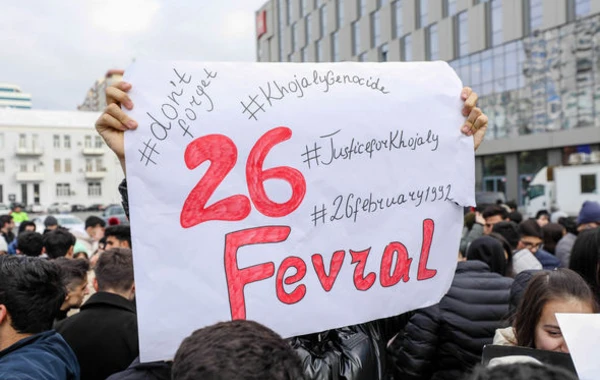 #don't forget
#KhojalyGenocide
26
#JusticeforKhojaly
#26february1992
Fevral